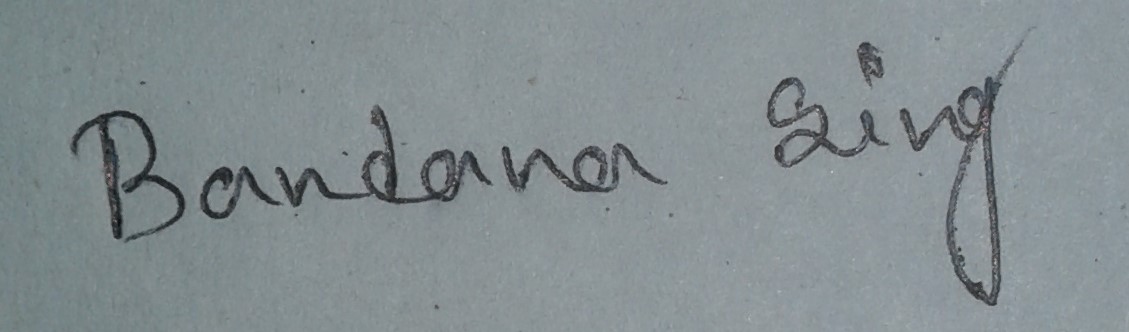 Bandana Sing